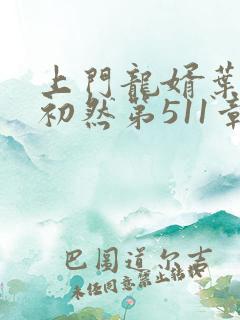 上門龍婿葉
初然第511章
巴圖道尔吉
未任同意禁止转板